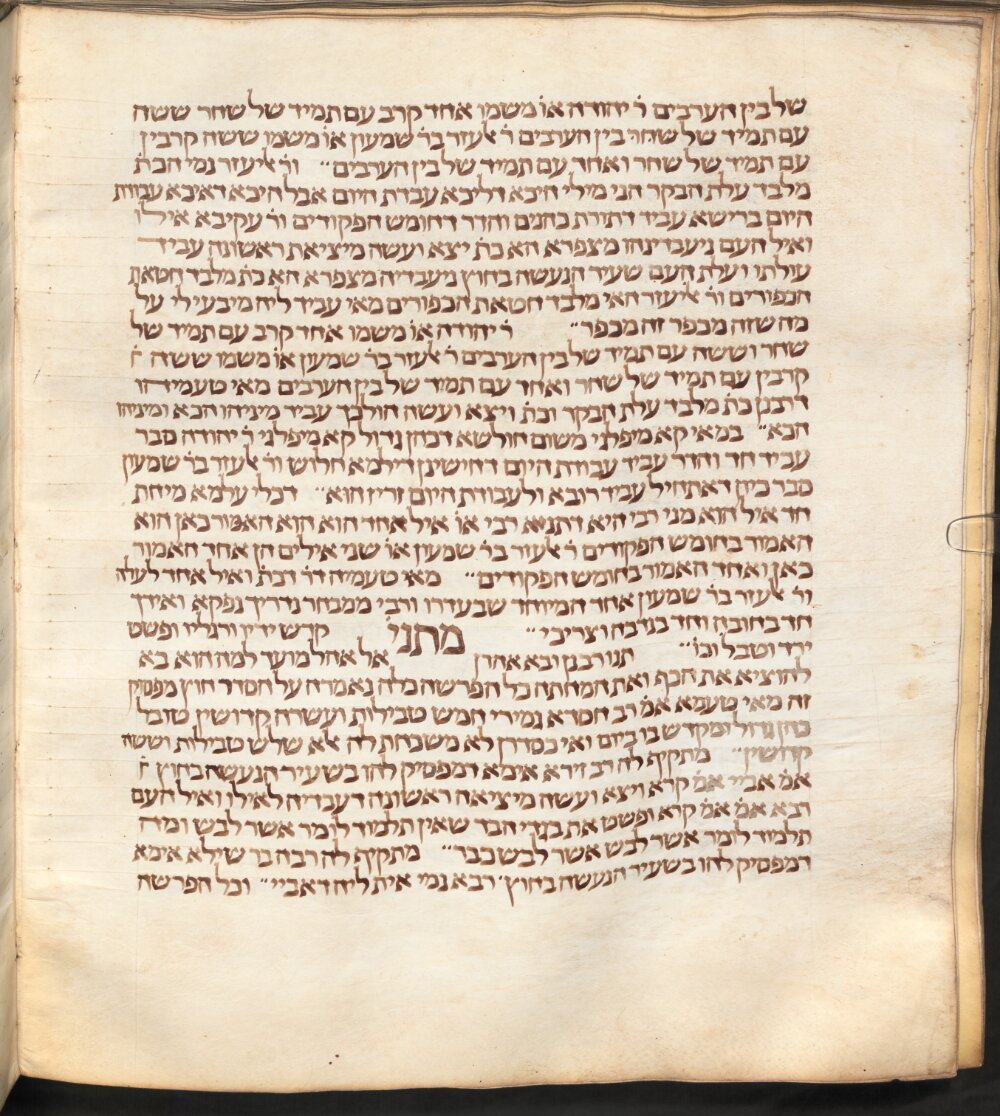 של בין הערבים ר׳ יהודה או׳ משמו אחד קרב עם תמיד של שחר ששה
עם תמיד של שחר בין הערבים ר׳ אלעזר בר׳ שמעון או׳ משמו ששה קרבין
עם תמיד של שחר ואחד עם תמיד של בין הערבים״ ור׳ אליעזר נמי הכת׳
מלבד עלת הבקר הני מילי היכא דליכא עבדת היום אבל היכא דאיכא עבודת
היום ברישא עביד דתורת כהנים והדר דחומש הפקודים ור׳ עקיבא אילו
ואיל העם ניעבדינהו מצפרא הא כת׳ יצא ועשה מיציאה ראשונה עביד
עולתו ועלת העם שעיר הנעשה בחוץ ניעבדיה מצפרא הא כת׳ מלבד חטאת
הכפורים ור׳ אליעזר האי מלבד חטאת הכפורים מאי עביד ליה מיבעי לי על
מה שזה מכפר זה מכפר״ ר׳ יהודה או׳ משמו אחד קרב עם תמיד של
שחר וששה עם תמיד של בין הערבים ר׳ אלעזר בר׳ שמעון או׳ משמו ששה
קרבין עם תמיד של שחר ואחד עם תמיד של בין הערבים מאי טעמייהו
דרבנן כת׳ מלבד עלת הבקר וכת׳ ויצא ועשה הולכך עביד מיניהו הכא ומיניהו
הכא״ במאי קא מיפלגי משום חולשא דכהן גדול קא מיפלגי ר׳ יהודה סבר
עביד חד והדר עביד עבודת היום דחישינן דילמא חלוש ור׳ אלעזר בר׳ שמעון
סבר כיון דאתחיל עביד רובא ולעבודת היום זריז הוא״ דכלי עלמא מיהת
חד איל הוא מני רבי היא דתניא רבי או׳ איל אחד הוא הוא האמור כאן הוא
האמור בחומש הפקודים ר׳ אלעזר בר׳ שמעון או׳ שני אילים הן אחד האמור
כאן ואחד האמור בחומש הפקודים״ מאי טעמיה דר׳ דכת׳ ואיל אחד לעולה
ור׳ אלעזר בר׳ שמעון אחד המיוחד שבעדרו ורבי ממבחר נדריך נפקא ואידך
חד בחובה וחד בנדבה וצריכי״ מתני׳ קדש ידיו ורגליו ופשט
ירד וטבל וכו׳״ תנו רבנן ובא אהרן אל אהל מועד למה הוא בא
להוציא את הכף ואת המחתה כל הפרשה כולה נאמרה על הסדר חוץ מפסוק
זה מאי טעמא אמ׳ רב חסדא גמירי חמש טבילות ועשרה קדושין טובל
כהן גדול ומקדש בו ביום ואי כסדרן לא משכחת לה אלא שלש טבילות וששה
קדושין״ מתקיף לה רב זירא אימא דמפסיק להו בשעיר הנעשה בחוץ
אמ׳ אביי אמ׳ קרא ויצא ועשה מיציאה ראשונה דעבדיה לאילו ואיל העם
רבא אמ׳ אמ׳ קרא ופשט את בגדי הבד שאין תלמוד לומר אשר לבש ומה
תלמוד לומר אשר לבש אשר לבש כבר״ מתקיף לה רבה בר שילא אימא
דמפסיק להו בשעיר הנעשה בחוץ׳ רבא נמי אית ליה דאביי״ וכל הפרשה